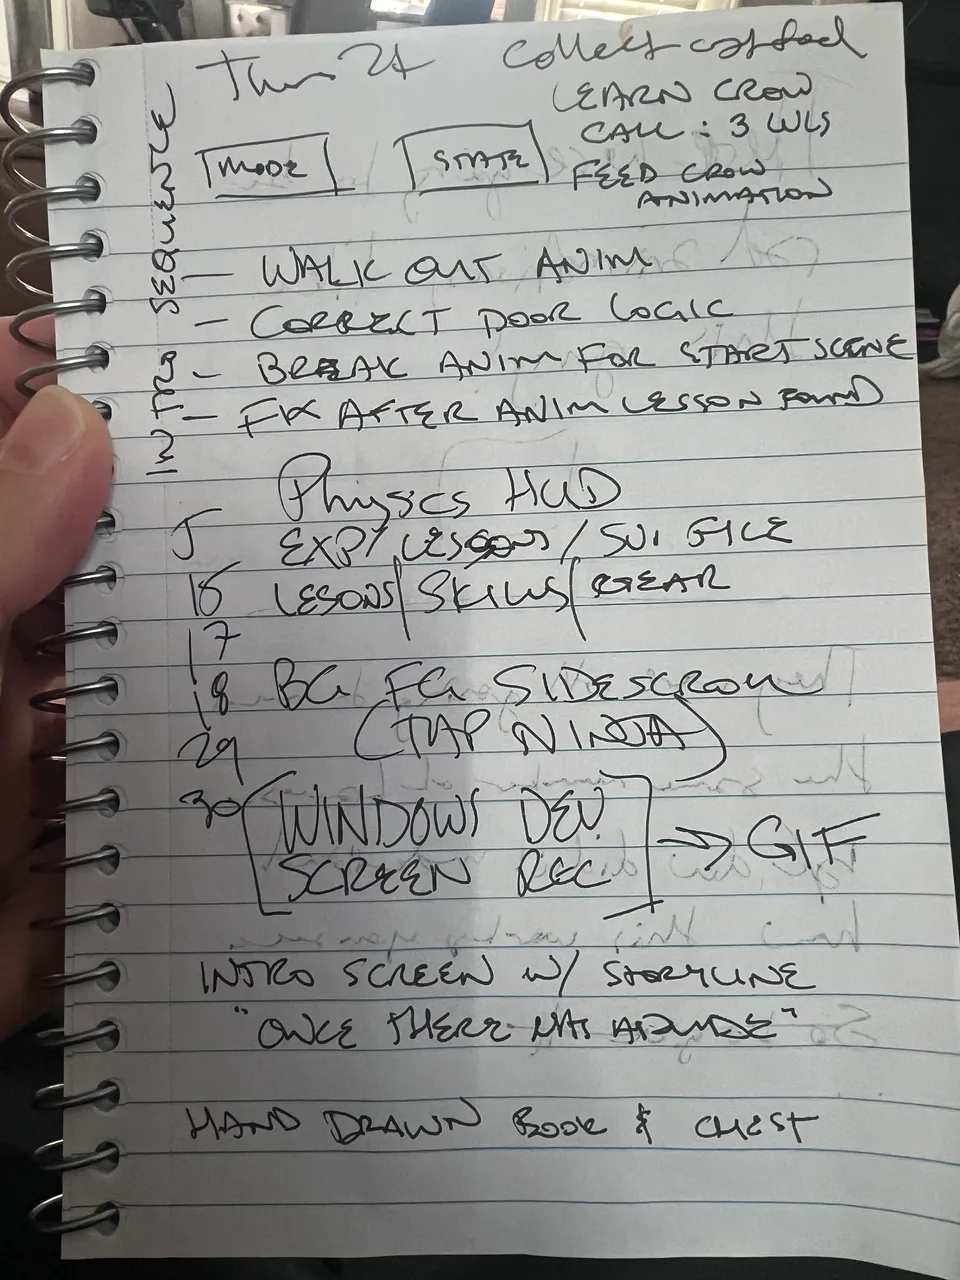 Thurs 24 collect cat food
LEARN CROW
CALL : 3 WLS
FEED CROW
ANIMATION
MODE STATE
INTRO SEQUENCE
— WALK OUT ANIM
— CORRECT DOOR LOGIC
— BREAK ANIM FOR START SCENE
— FIX AFTER ANIM LESSON FOUND
Physics HUD
5 EXP/ LESSONS /
15 LESONS/ SKILLS/ GEAR
17
18 BG FG SIDESCROLL
29 (TAP NINJA)
30 [WINDOWS DEV
SCREEN REC] → GIF
INTRO SCREEN W/ STORYLINE
"ONCE THERE WAS A DUDE"
HAND DRAWN BOOK & CHEST